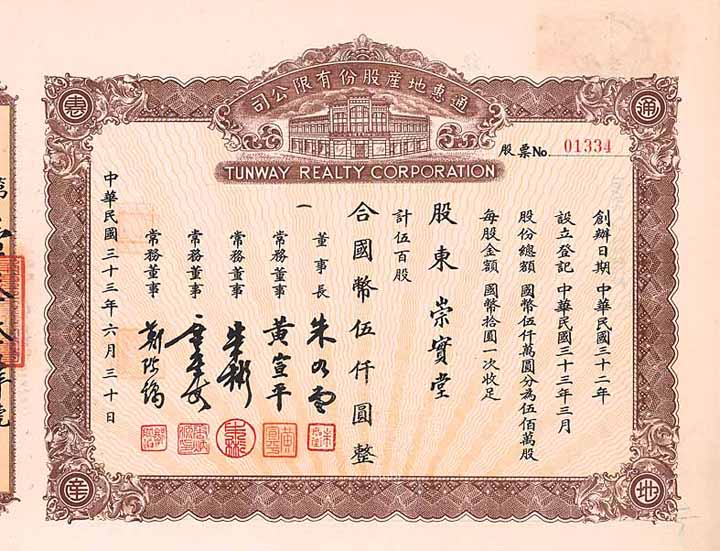 通惠地產股份有限公司
TUNWAY REALTY CORPORATION
通
惠
地
產
股票No. 01334
創辦日期 中華民國三十二年
設立登記 中華民國三十三年三月
股份總額 國幣伍仟萬圓分為伍佰萬股
每股金額 國幣拾圓一次收足
股東 崇實堂
計伍百股
合國幣伍仟圓整
董事長 朱
常務董事 黃宣平
常務董事 朱彬
常務董事
常務董事 鄭
中華民國三十三年六月三十日
第
號